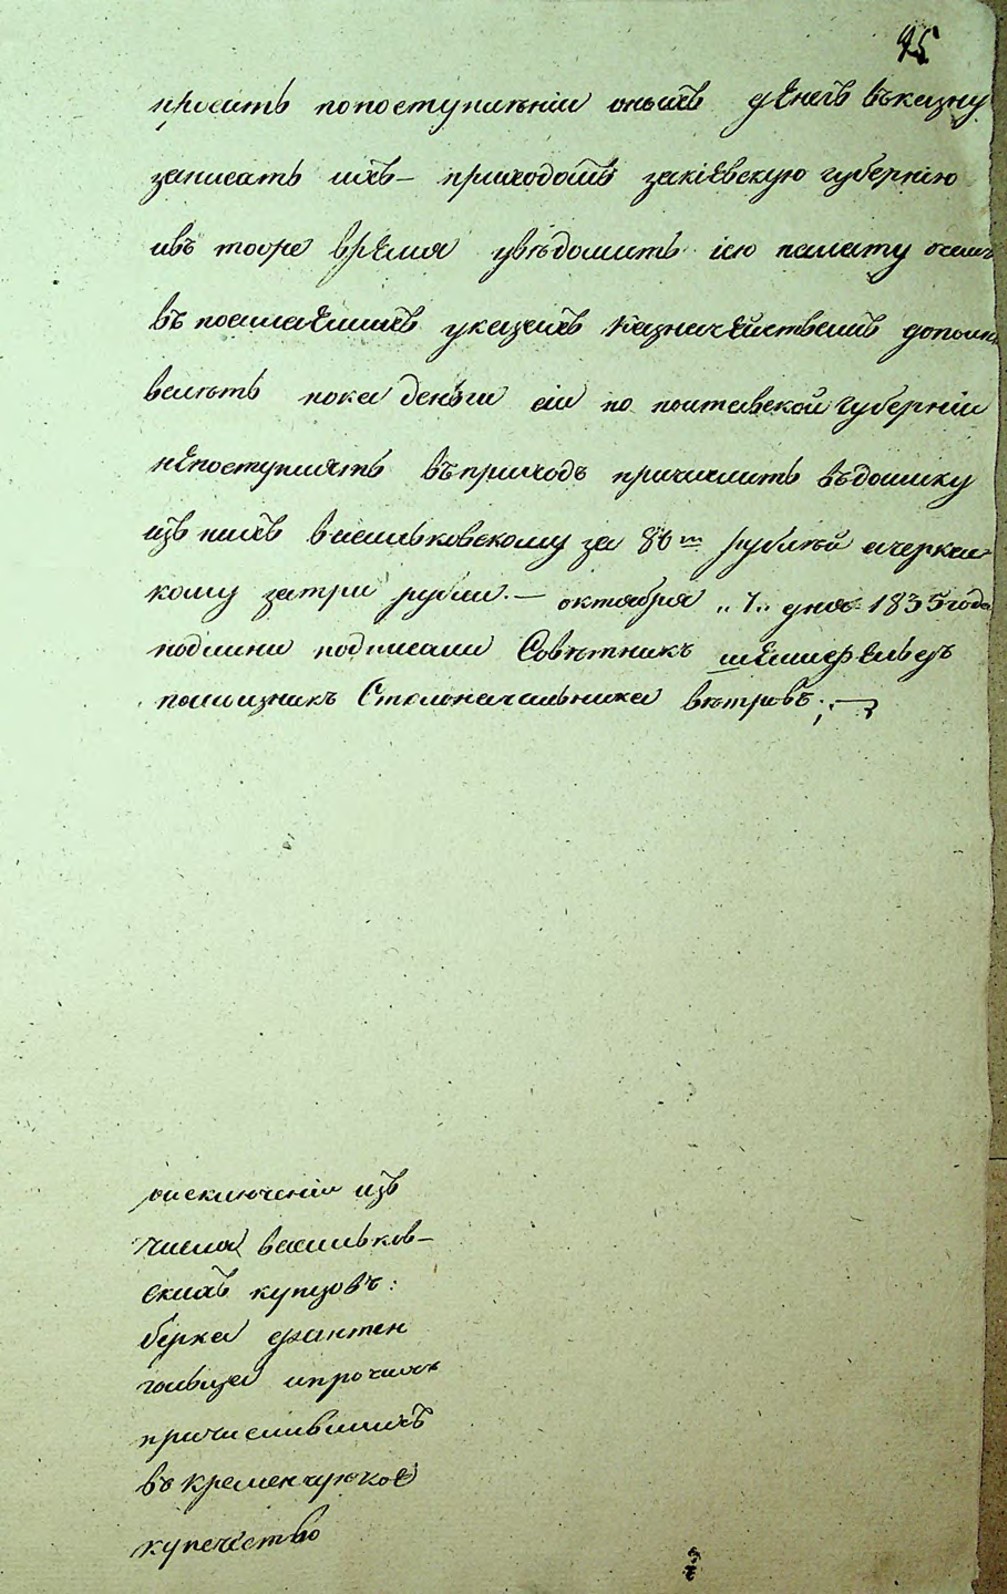 95
просить попоступленіи оныхъ денегъ въказну
записать ихъ – приходомъ закіевскую губернію
ивъ тоже время увѣдомить ію палату осемъ
въ посланныхъ указахъ казначействамъ дополн
велѣть пока деньги сіи по полтавской губерніи
непоступлять въприходъ причислить въдоимку
изъ нихъ васильковскому за 80 т рублей ачеркас
кому затри рубли. — октября „1„ дня 1835 года
подлини подписали Совѣтникъ
Столоначальника вѣтровъ
оисключеніи изъ
числа васильков–
скихъ купцовъ:
берка
гольца ипрочихъ
причислившихъ
въ кременчугское
купечество